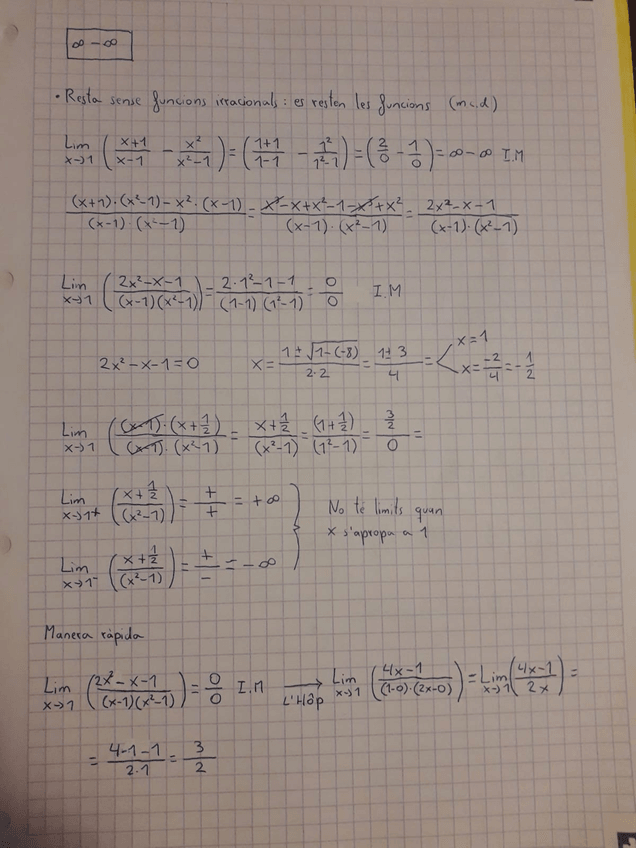 ∞ - ∞
• Resta sense funcions irracionals: es resten les funcions (m.c.d)
Lim x→1 ( (x+1)/(x-1) - x²/(x²-1) ) = ( (1+1)/(1-1) - 1²/(1²-1) ) = ( 2/0 - 1/0 ) = ∞ - ∞ I.M
((x+1)·(x²-1) - x²·(x-1))/((x-1)·(x²-1)) = (x³-x+x²-1-x³+x²)/((x-1)·(x²-1)) = (2x²-x-1)/((x-1)·(x²-1))
Lim x→1 ( (2x²-x-1)/((x-1)(x²-1)) ) = (2·1²-1-1)/((1-1)(1²-1)) = 0/0 I.M
2x²-x-1=0 x = (1±√(1-(-8)))/(2·2) = (1±3)/4 = < x=1 x = -2/4 = -1/2
Lim x→1 ( ((x-1)·(x+1/2))/((x-1)·(x²-1)) ) = (x+1/2)/(x²-1) = (1+1/2)/(1²-1) = (3/2)/0 =
Lim x→1+ ( (x+1/2)/(x²-1) ) = +/+ = +∞
Lim x→1- ( (x+1/2)/(x²-1) ) = +/- = -∞
} No té límits quan
x s'apropa a 1
Manera ràpida
Lim x→1 ( (2x²-x-1)/((x-1)(x²-1)) ) = 0/0 I.M → L'Hôp Lim x→1 ( (4x-1)/((1-0)·(2x-0)) ) = Lim x→1 ( (4x-1)/(2x) ) =
= (4·1-1)/(2·1) = 3/2